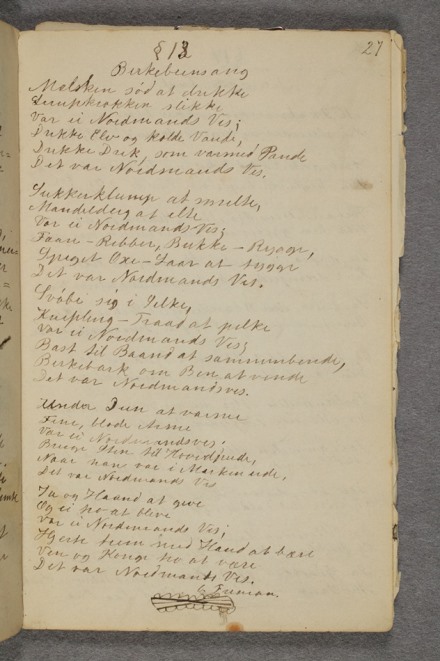 § 13
27
Birkebeensang
Melken sød at drikke
Rumpkrokken slikke
Var ei Nordmands Vis;
Drikke Elv og kolde Vande,
Drikke Drik, som varmed Pande
Det var Nordmands Vis.
Sukkerklump at smelte,
Mandeldeig at elte
Var ei Nordmands Vis;
Faare-Ribber, Bukke-Rygge,
Speget Oxe-Laar at tygge
Det var Nordmands Vis.
Svøbe sig i Silke,
Kniplings-Traad at pilke
Var ei Nordmands Vis;
Bast til Baand at sammenbinde,
Birkebark om Been at vinde
Det var Nordmandsvis.
Under Duun at varme
Fine, bløde Arme
Var ei Nordmandsvis.
Bruge Steen til Hovedpude,
Naar han var i Marken ude,
Det var Nordmands Vis
Ja og Haand at give
Og ei tro at blive
Var ei Nordmands Vis;
Hjerte teem med Haand at bære
Ven og Konge tro at være
Det var Nordmands Vis.